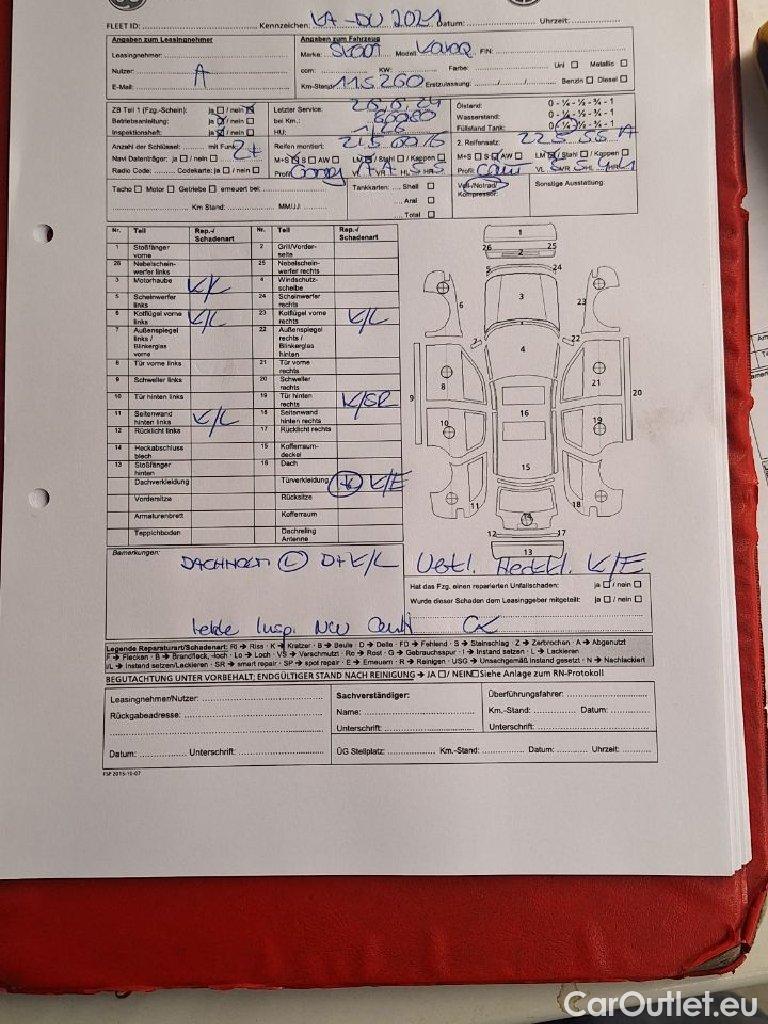 FLEET ID: Kennzeichen: Datum: Uhrzeit:
Angaben zum Leasingnehmer
Leasingnehmer:
Nutzer: A
E-Mail:
Angaben zum Fahrzeug
Marke: SKODA Modell: KODIAQ FIN:
ccm: KW: Farbe: Uni ☐ Metallic ☐
Km-Stand: 115.260 Erstzulassung: Benzin ☐ Diesel ☐
ZB Teil 1 (Fzg.-Schein): ja ☐ / nein ☒
Betriebsanleitung: ja ☒ / nein ☐
Inspektionsheft: ja ☒ / nein ☐
Anzahl der Schlüssel: mit Funk: 2x
Navi Datenträger: ja ☐ / nein ☐
Radio Code: Codekarte: ja ☐ / nein ☐
Letzter Service: 26.6.24
bei Km.:
HU:
Reifen montiert: 215 60 16
M+S ☒ S ☐ AW ☐ LM ☒ / Stahl ☐ / Kappen ☐
Profil: VL VR HL HR
Ölstand: 0 - ¼ - ½ - ¾ - 1
Wasserstand: 0 - ¼ - ½ - ¾ - 1
Füllstand Tank: 0 - ¼ - ½ - ¾ - 1
2. Reifensatz: 225 55
M+S ☐ S ☒ AW ☐ LM ☒ / Stahl ☐ / Kappen ☐
Profil: VL VR
Tacho ☐ Motor ☐ Getriebe ☐ erneuert bei:
Km Stand: MM/JJ
Tankkarten: Shell ☐
Aral ☐
Total ☐
Kompressor:
Sonstige Ausstattung:
Nr. Teil Rep.-/Schadenart Nr. Teil Rep.-/Schadenart
1 Stoßfänger vorne 2 Grill/Vorder-seite
26 Nebelschein-werfer links 25 Nebelschein-werfer rechts
3 Motorhaube K/L 4 Windschutz-scheibe
5 Scheinwerfer links 24 Scheinwerfer rechts
6 Kotflügel vorne links K/L 23 Kotflügel vorne rechts K/L
7 Außenspiegel links / Blinkerglas vorne 22 Außenspiegel rechts / Blinkerglas hinten
8 Tür vorne links 21 Tür vorne rechts
9 Schweller links 20 Schweller rechts
10 Tür hinten links 19 Tür hinten rechts K/SR
11 Seitenwand hinten links K/L 18 Seitenwand hinten rechts
12 Rücklicht links 17 Rücklicht rechts
14 Heckabschluss blech 15 Kofferraum-deckel
13 Stoßfänger hinten 16 Dach
Dachverkleidung Türverkleidung K/E
Vordersitze Rücksitze
Armaturenbrett Kofferraum
Teppichboden Dachreling Antenne
1
26 25
2
5 24
3
6 23
7 22
4
8 21
9 20
16
10 19
15
11 18
14
12 17
13
Bemerkungen:
DACHHOLM (L) D+K/L Verkl. Heckkl. K/E
Hat das Fzg. einen reparierten Unfallschaden: ja ☐ / nein ☐
Wurde dieser Schaden dem Leasinggeber mitgeteilt: ja ☐ / nein ☐
letzte Insp.
Legende Reparaturart/Schadenart: RI → Riss - K → Kratzer - B → Beule - D → Delle - FD → Fehlend - S → Steinschlag - Z → Zerbrochen - A → Abgenutzt
F → Flecken - B → Brandfleck, -loch - Lo → Loch - VS → Verschmutzt - Ro → Rost - G → Gebrauchsspur - I → Instand setzen - L → Lackieren
I/L → Instand setzen/Lackieren - SR → smart repair - SP → spot repair - E → Erneuern - R → Reinigen - USG → Unsachgemäß instand gesetzt - N → Nachlackiert
BEGUTACHTUNG UNTER VORBEHALT; ENDGÜLTIGER STAND NACH REINIGUNG → JA ☐ / NEIN ☐ Siehe Anlage zum RN-Protokoll
Leasingnehmer/Nutzer:
Rückgabeadresse:
Datum: Unterschrift:
Sachverständiger:
Name:
Unterschrift:
Überführungsfahrer:
Km.-Stand: Datum:
Unterschrift:
ÜG Stellplatz: Km.-Stand: Datum: Uhrzeit:
CarOutlet.eu